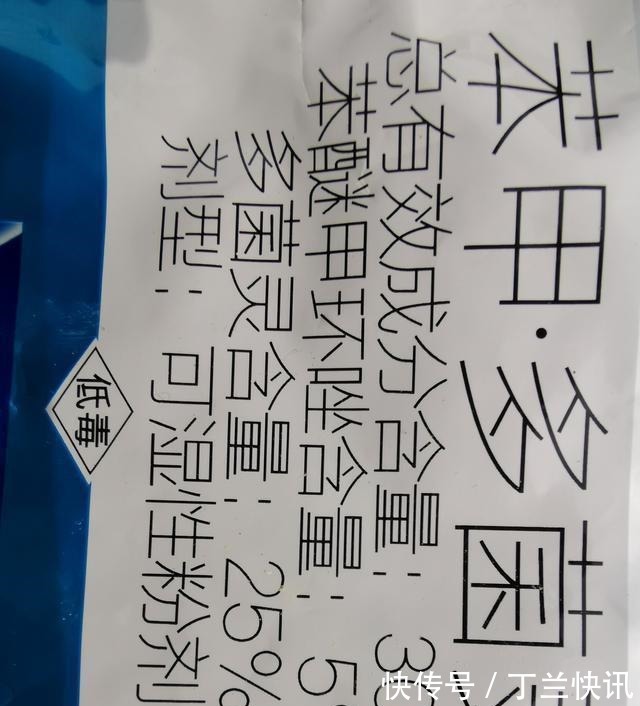 苯甲·多菌
总有效成分含量：3
苯醚甲环唑含量：5
多菌灵含量：25%
剂型：可湿性粉剂
低毒
快传号 / 丁兰快讯